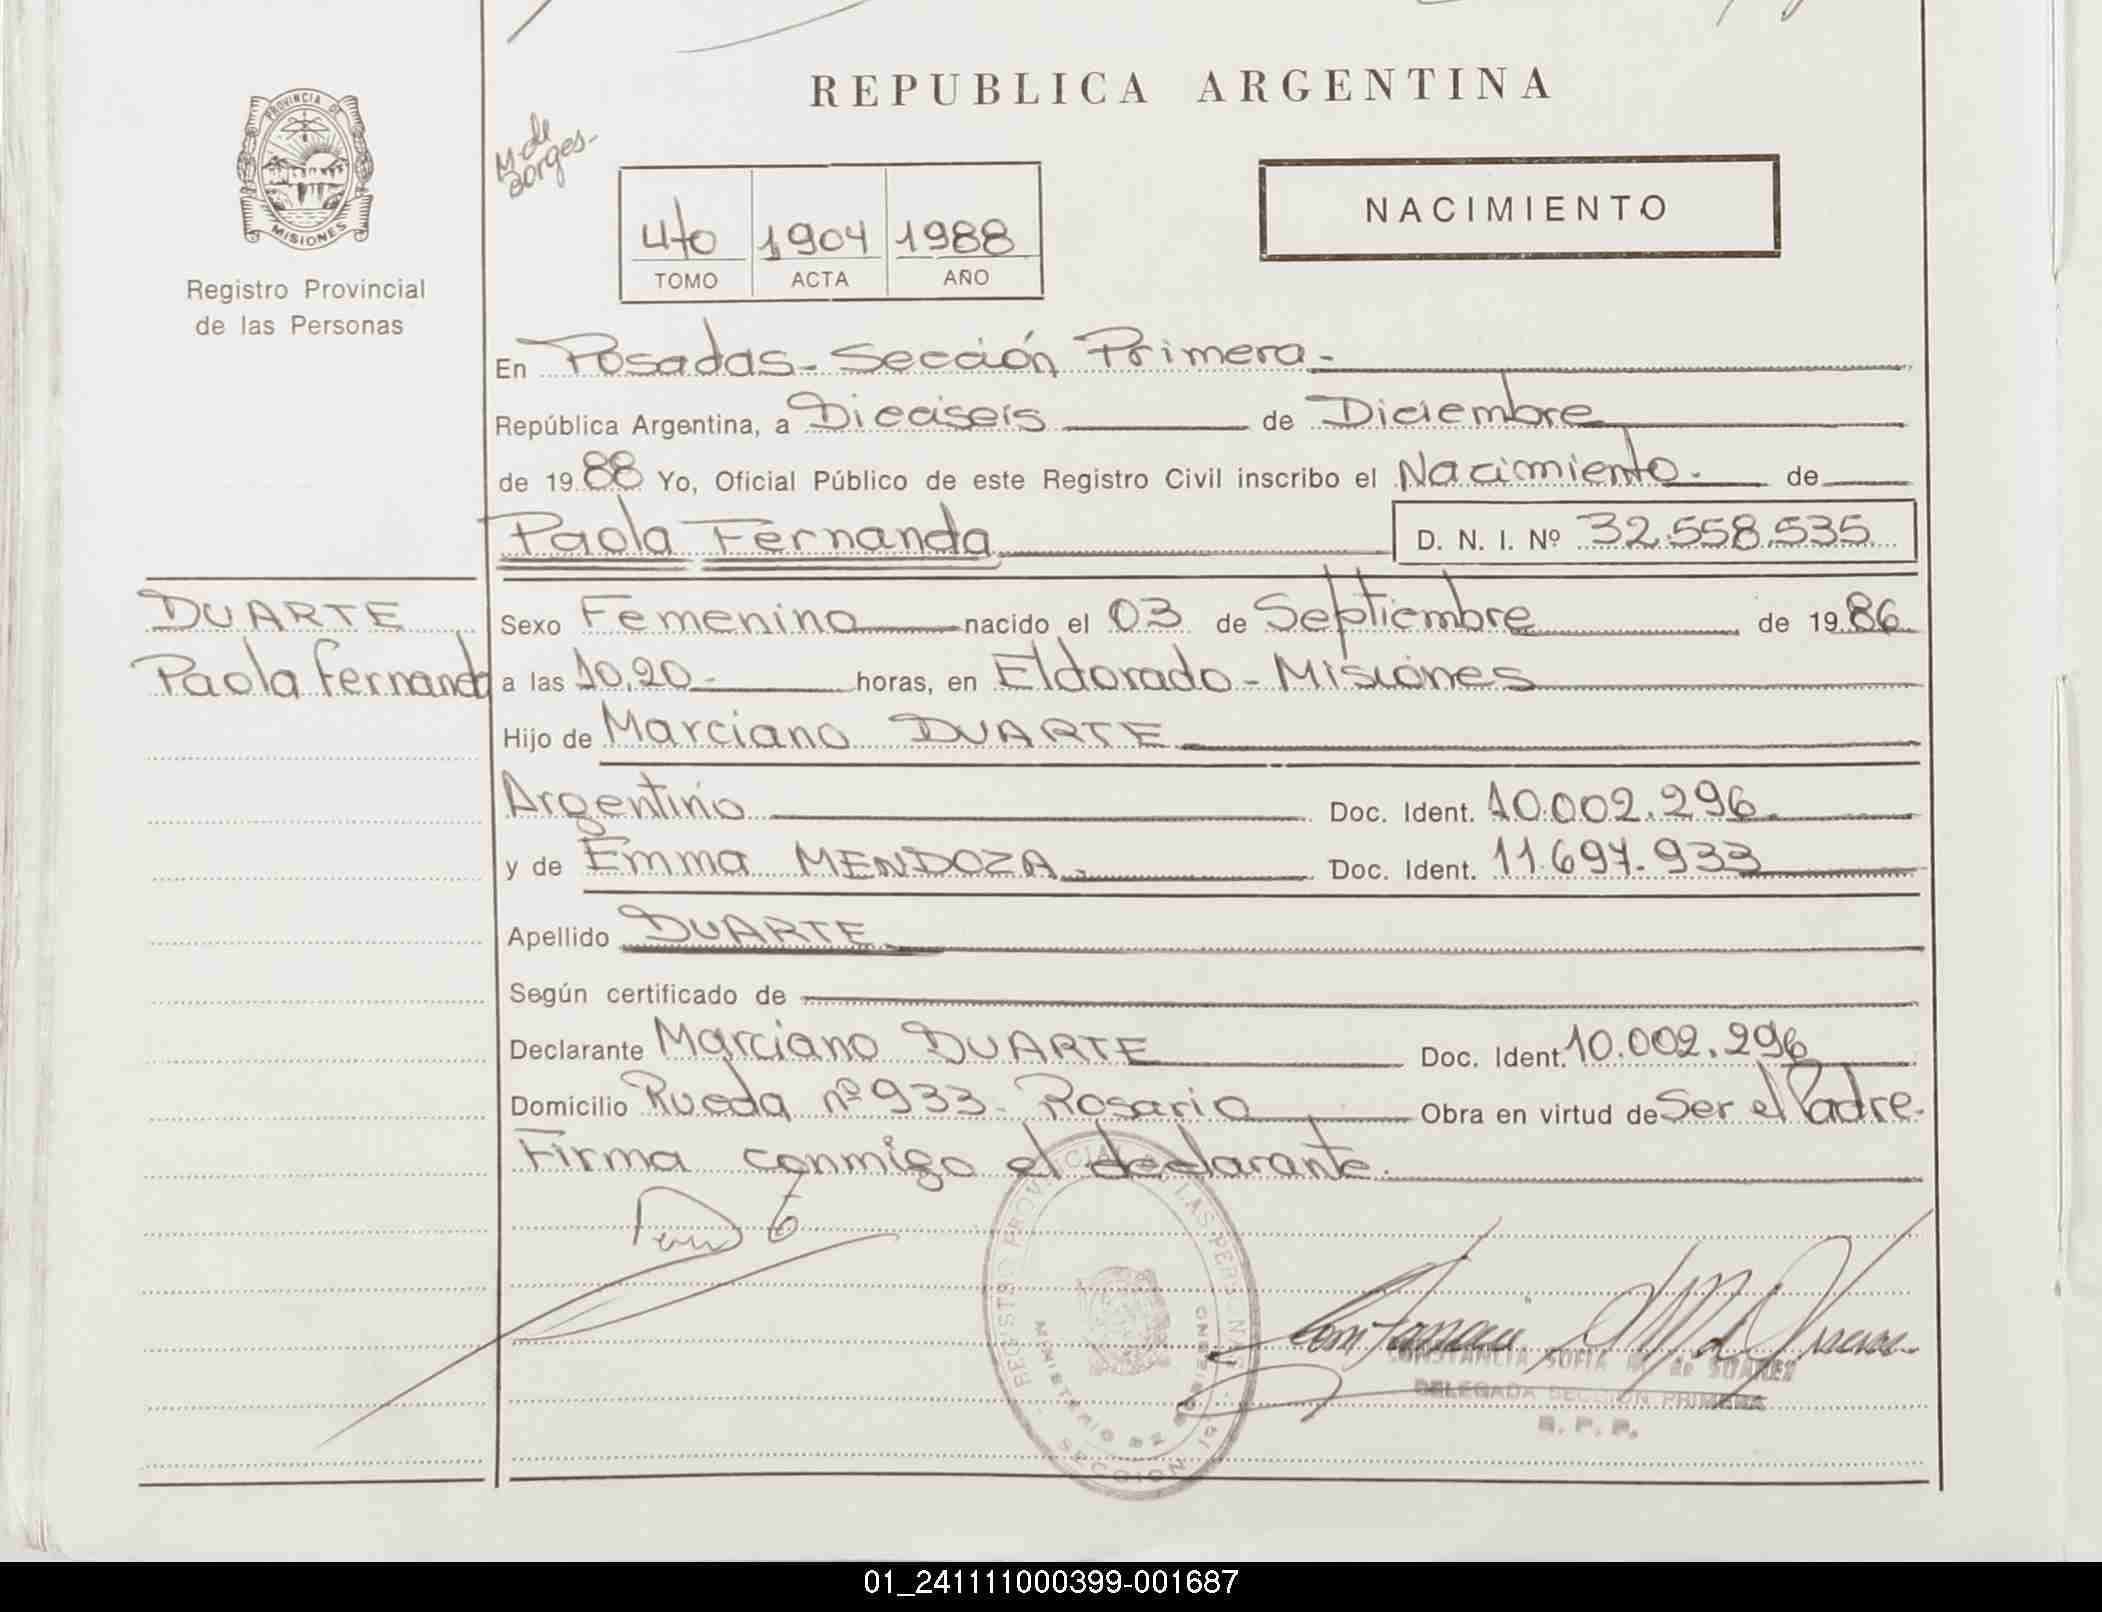 REPUBLICA ARGENTINA
PROVINCIA DE
MISIONES
Registro Provincial
de las Personas
M. de
Borges-
4to 1904 1988
TOMO ACTA AÑO
NACIMIENTO
En Posadas - Sección Primera -
República Argentina, a Dieciseis de Diciembre
de 1988 Yo, Oficial Público de este Registro Civil inscribo el Nacimiento. de
Paola Fernanda D. N. I. Nº 32.558.535
DUARTE
Paola Fernanda
Sexo Femenino nacido el 03 de Septiembre de 1986
a las 10,20- horas, en Eldorado - Misiones
Hijo de Marciano DUARTE
Argentino Doc. Ident. 10.002.296
y de Emma MENDOZA. Doc. Ident. 11.697.933
Apellido DUARTE
Según certificado de
Declarante Marciano DUARTE Doc. Ident. 10.002.296
Domicilio Rueda nº 933- Rosario Obra en virtud de Ser el Padre.
Firma conmigo el declarante.
REGISTRO PROVINCIAL DE LAS PERSONAS
MINISTERIO DE GOBIERNO
SECCION 1ª
CONSTANCIA SOFIA M. de SUAREZ
DELEGADA SECCION PRIMERA
R. P. P.
01_241111000399-001687